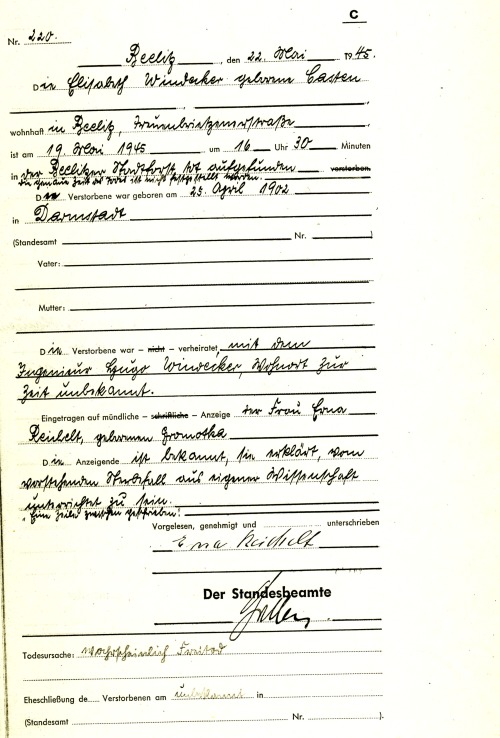 C
Nr. 220.
Beelitz, den 22. Mai 1945.
Die Elisabeth Windecker geborene Casten
wohnhaft in Beelitz, Treuenbrietzenerstraße
ist am 19. Mai 1945 um 16 Uhr 30 Minuten
in der Beelitzer Stadtforst tot aufgefunden verstorben.
Die genaue Zeit des Todes ist nicht festgestellt worden.
Die Verstorbene war geboren am 25. April 1902
in Darmstadt
(Standesamt Nr. )
Vater:
Mutter:
Die Verstorbene war – nicht – verheiratet, mit dem
Ingenieur Hugo Windecker, Wohnort zur
Zeit unbekannt.
Eingetragen auf mündliche – schriftliche – Anzeige der Frau Erna
Reichelt, geborenen Gromotka
Die Anzeigende ist bekannt, sie erklärt, vom
vorstehenden Sterbefall aus eigener Wissenschaft
unterrichtet zu sein.
"Eine Zeile zwischen geschrieben."
Vorgelesen, genehmigt und unterschrieben
Erna Reichelt
Der Standesbeamte
Todesursache: wahrscheinlich Freitod
Eheschließung de Verstorbenen am unbekannt in
(Standesamt Nr. ).